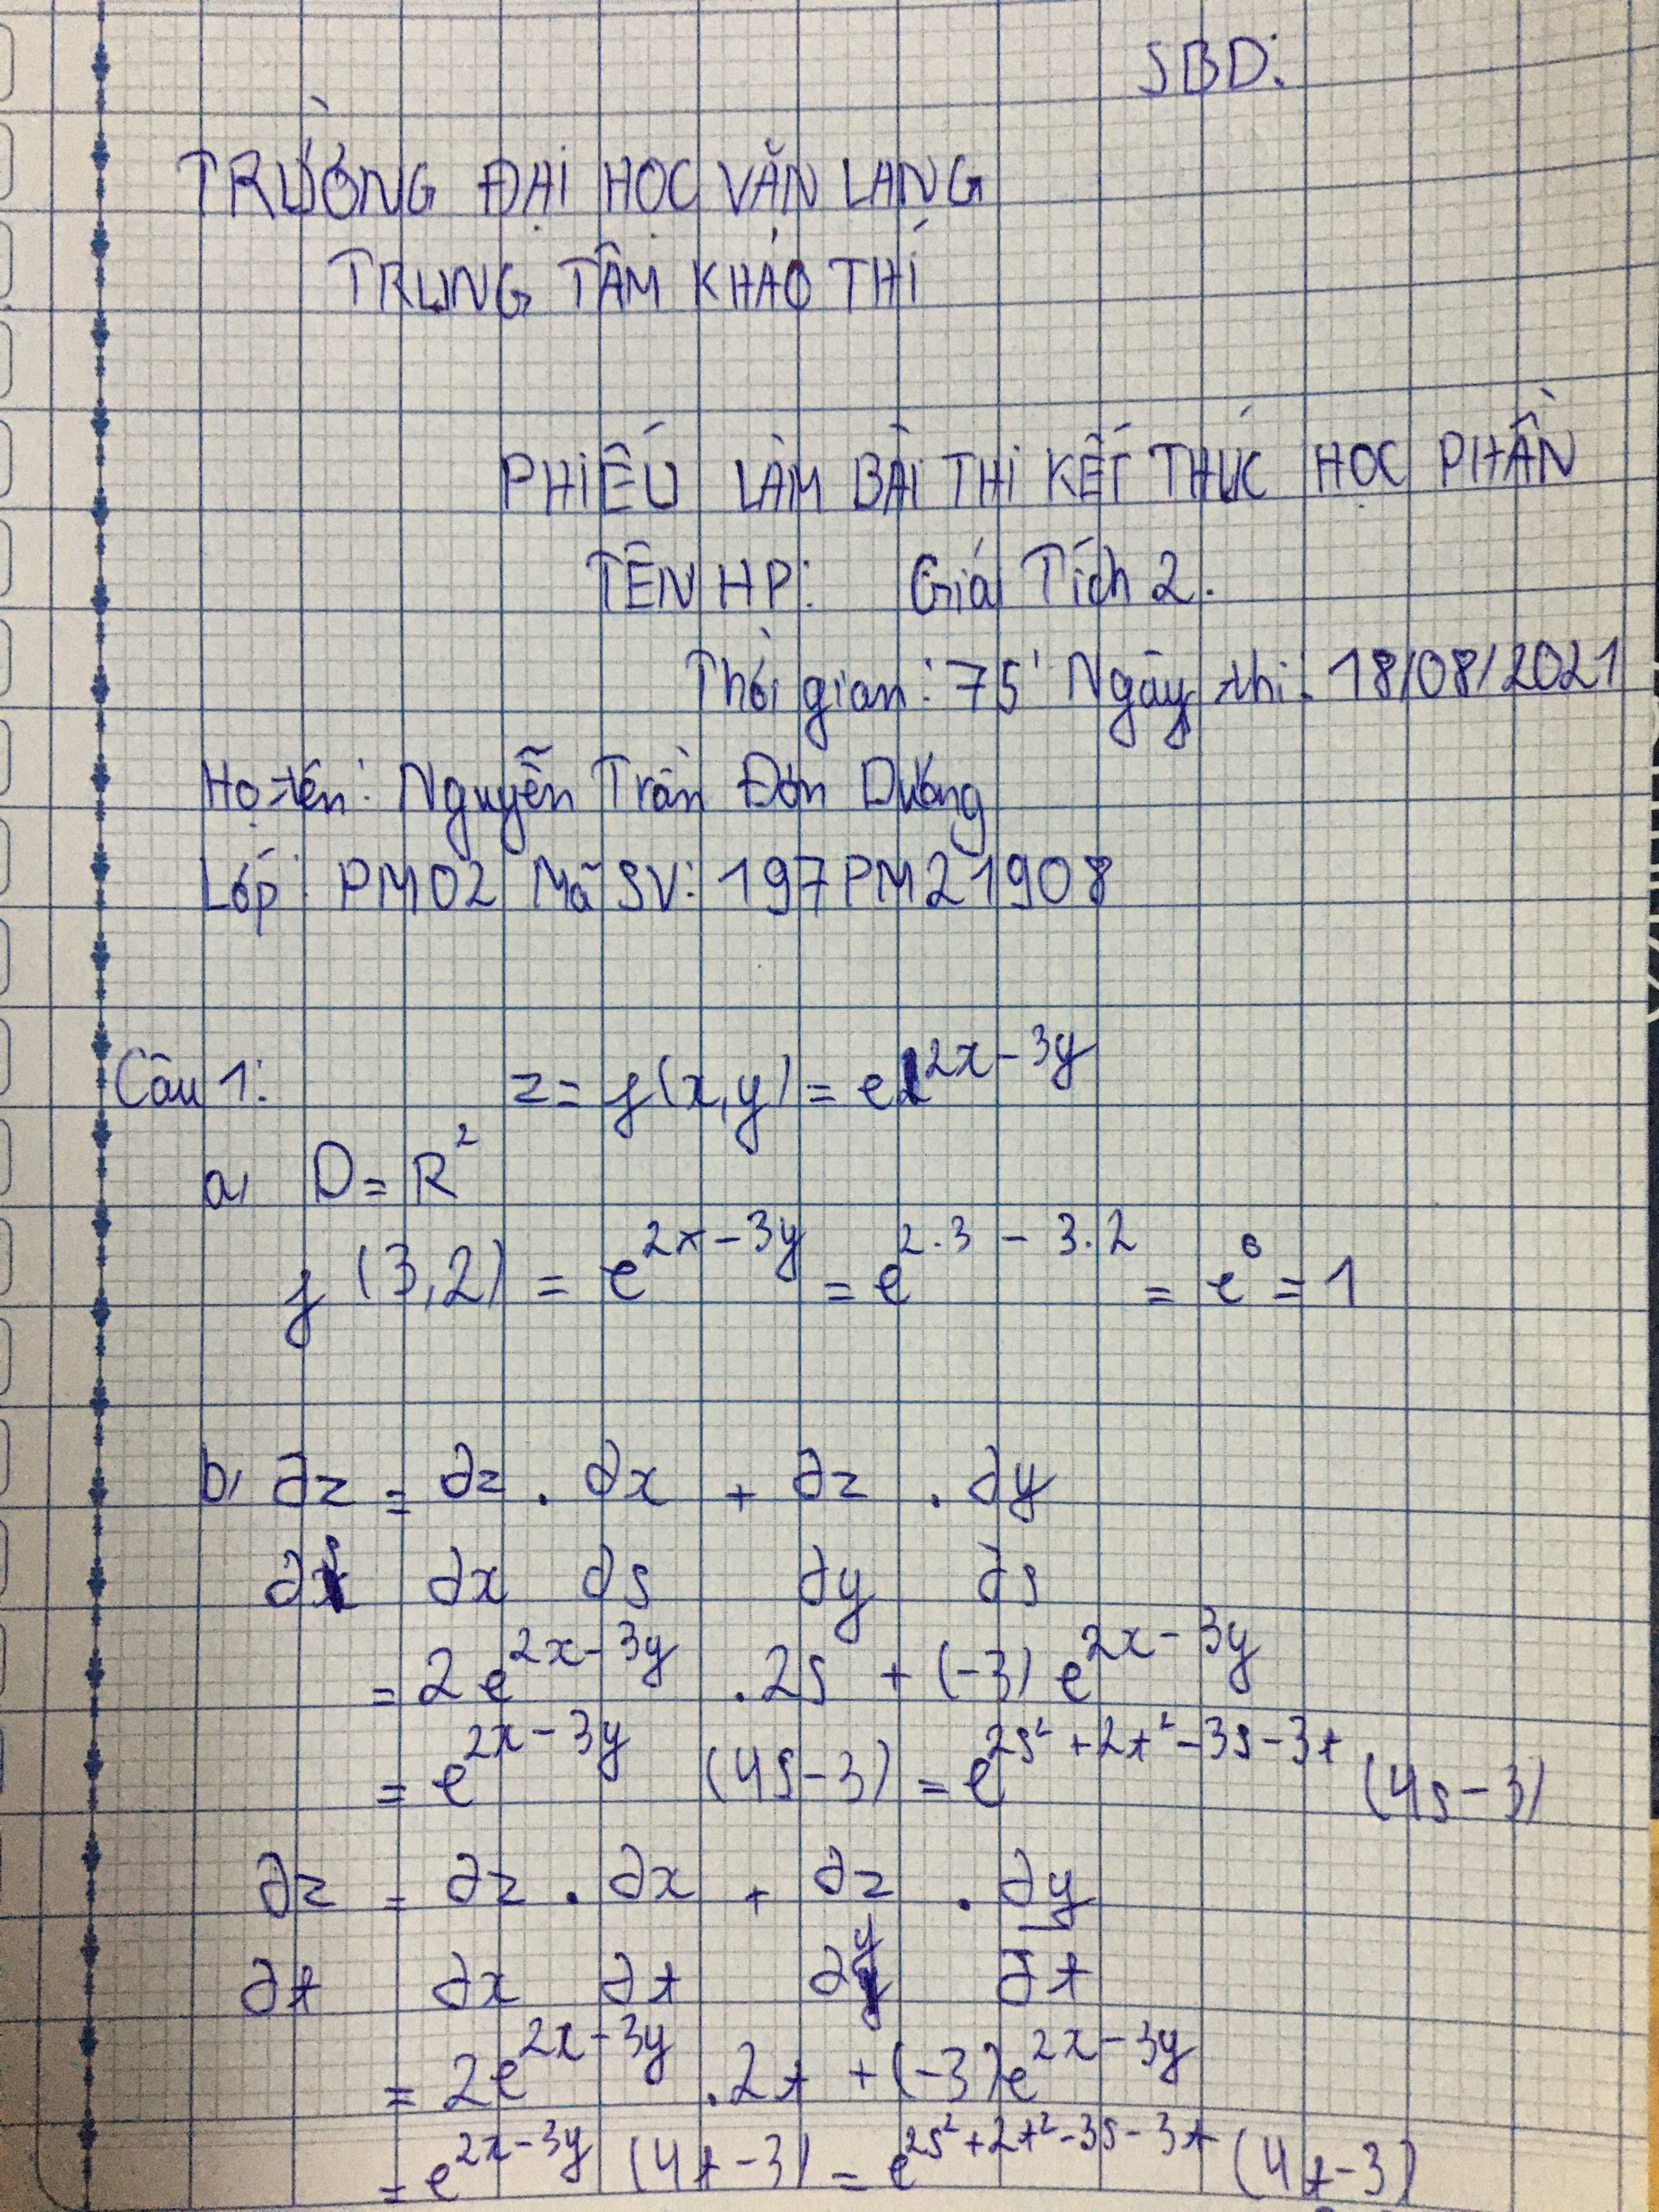 SBD:
TRƯỜNG ĐẠI HỌC VĂN LANG
TRUNG TÂM KHẢO THÍ
PHIẾU LÀM BÀI THI KẾT THÚC HỌC PHẦN
TÊN HP: Giá Tích 2.
Thời gian: 75' Ngày thi: 18/08/2021
Họ tên: Nguyễn Trần Đơn Dương
Lớp: PM02 Mã SV: 197PM21908
Câu 1: z = f(x,y) = e^{2x-3y}
a, D = R^2
f(3,2) = e^{2x-3y} = e^{2.3 - 3.2} = e^0 = 1
b, ∂z = ∂z . ∂x + ∂z . ∂y
∂s ∂x ∂s ∂y ∂s
= 2e^{2x-3y} .2s + (-3) e^{2x-3y}
= e^{2x-3y} (4s-3) = e^{2s^2+2t^2-3s-3t} (4s-3)
∂z = ∂z . ∂x + ∂z . ∂y
∂t ∂x ∂t ∂y ∂t
= 2e^{2x-3y} .2t + (-3)e^{2x-3y}
= e^{2x-3y} (4t-3) = e^{2s^2+2t^2-3s-3t} (4t-3)